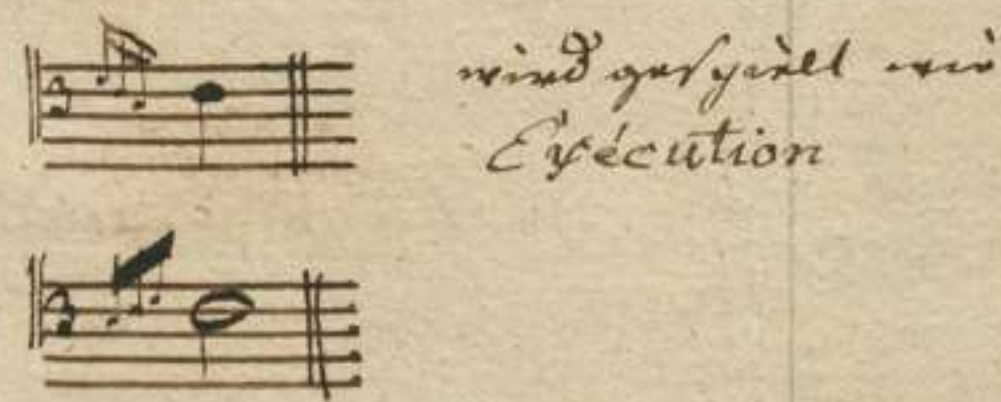 wird gespielt wie
Exécution